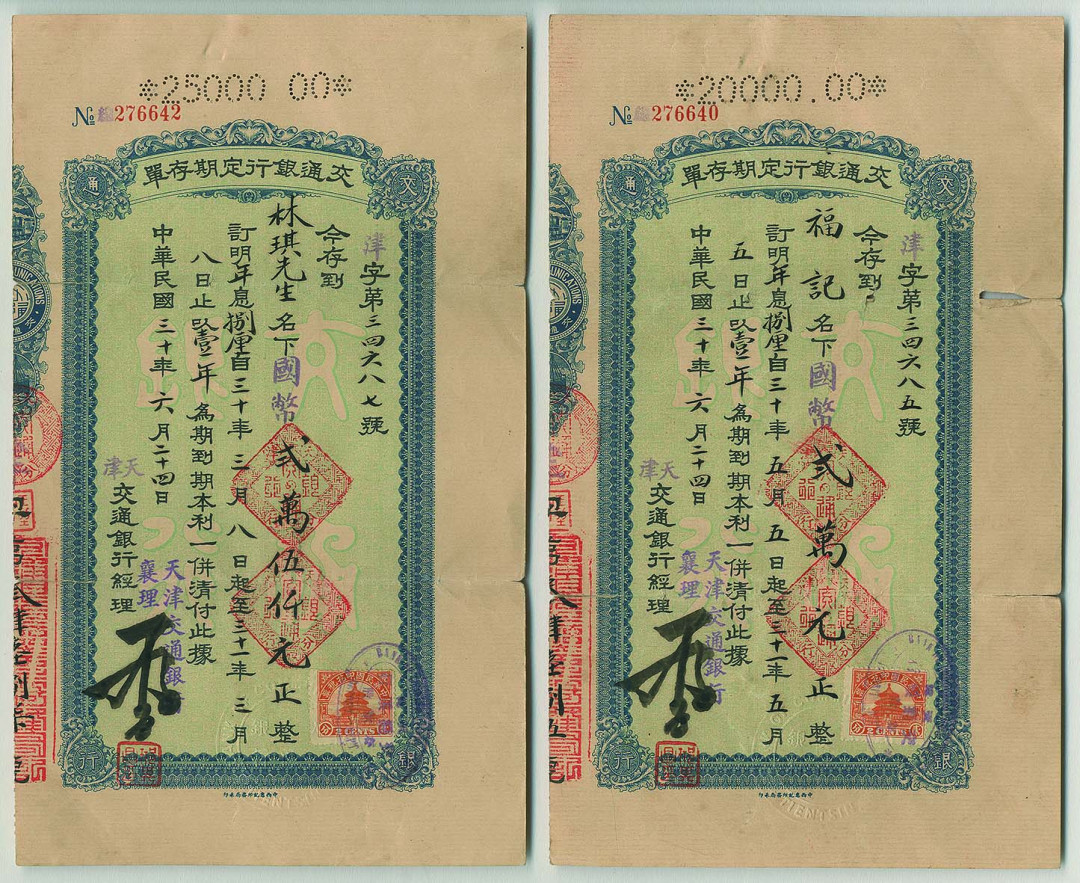 *25000 00*
№ 276642
交通銀行定期存單
津字第三四六八七號
今存到
林琪先生名下國幣弍萬伍仟元正整
訂明年息捌厘自三十年三月八日起至三十一年三月
八日止以壹年為期到期本利一併清付此據
中華民國三十年六月二十四日
天津
交通銀行經理
天津交通銀行
襄理
交通銀行
*20000.00*
№ 276640
交通銀行定期存單
津字第三四六八五號
今存到
福記名下國幣弍萬元正整
訂明年息捌厘自三十年五月五日起至三十一年五月
五日止以壹年為期到期本利一併清付此據
中華民國三十年六月二十四日
天津
交通銀行經理
天津交通銀行
襄理
交通銀行